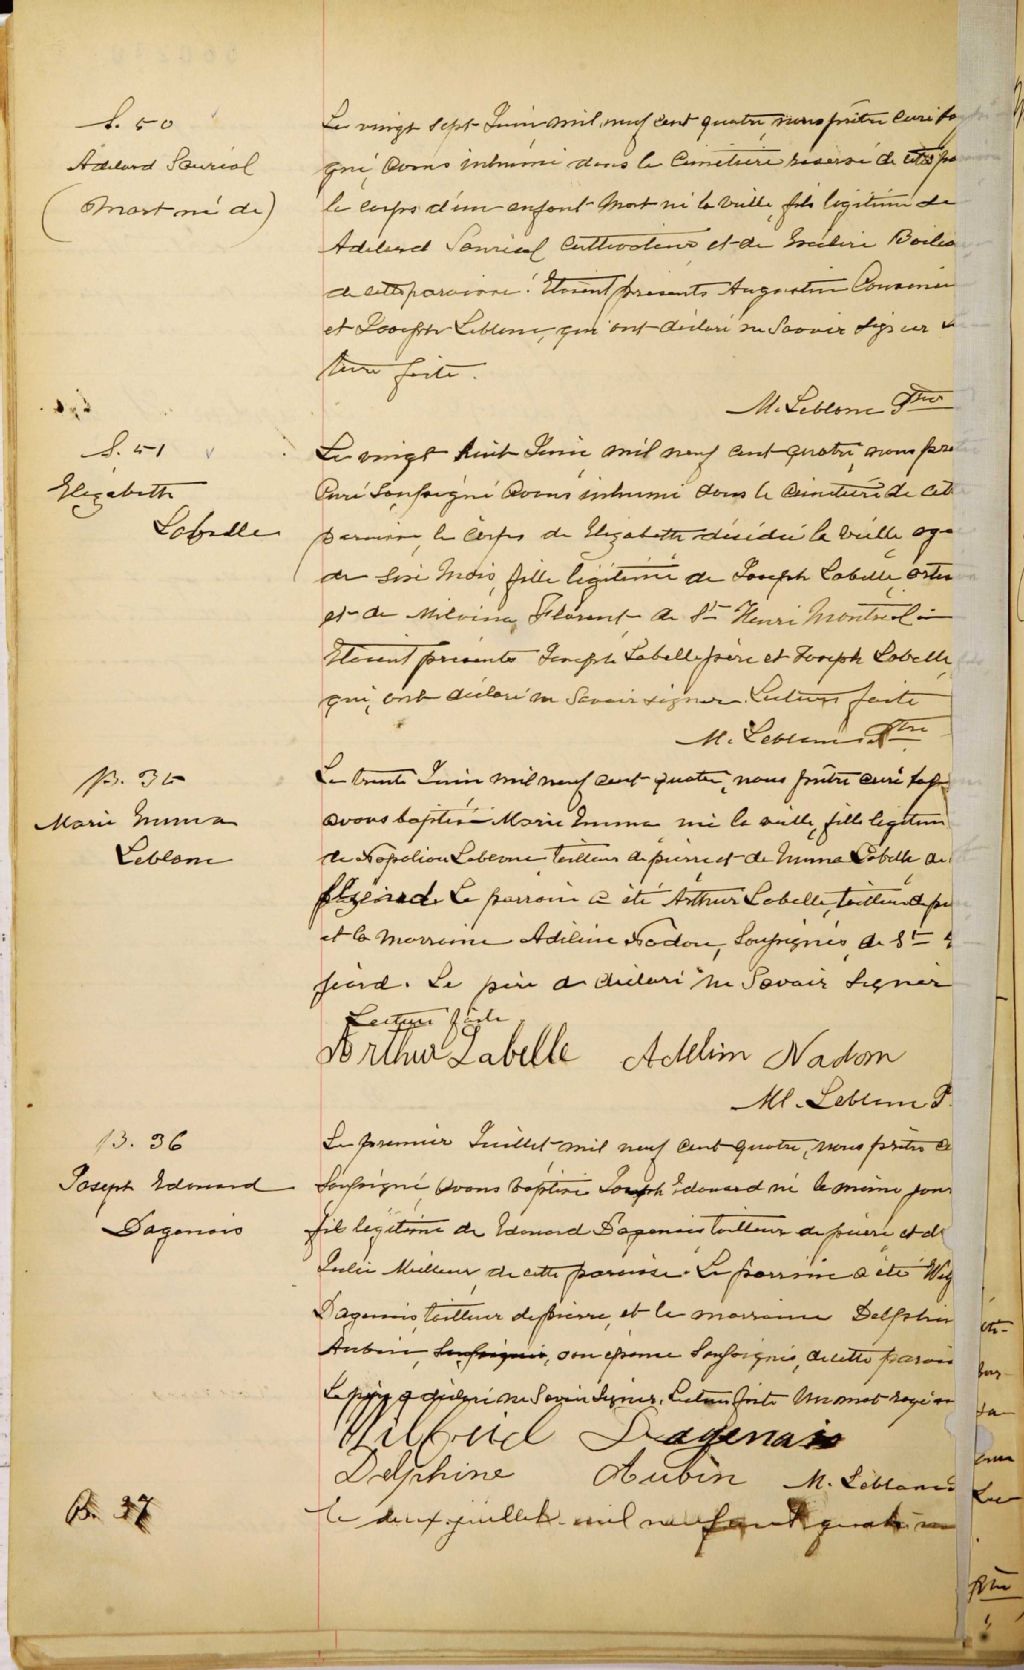 S. 50
Adélard Sauriol
(Mort né de)
Le vingt sept Juin mil neuf cent quatre, nous prêtre curé
gné, avons inhumé dans le cimetière réservé de cette
le corps d'un enfant mort né la veille, fils légitime de
Adélard Sauriol cultivateur et de
de cette paroisse. Etaient présents Augustin
et Joseph Leblanc, qui ont déclaré ne savoir signer
ture faite.
M. Leblanc Ptre
S. 51
Elizabeth
Labelle
Le vingt huit Juin mil neuf cent quatre, nous
Curé soussigné avons inhumé dans le cimetière de
paroisse, le corps de Elizabeth décédée la veille
de six mois, fille légitime de Joseph Labelle
et de Melvina Florent de St Henri Montréal
Etaient présents Joseph Labelle père et Joseph Labelle
qui, ont déclaré ne savoir signer. Lecture faite
M. Leblanc Ptre
B. 35
Marie Emma
Leblanc
Le trente Juin mil neuf cent quatre, nous prêtre curé
avons baptisé Marie Emma née la veille, fille
de Napoléon Leblanc tailleur de pierre et de Emma Labelle de
Le parrain a été Arthur Labelle, tailleur de
et la marraine Adéline Nadon, soussignés, de St
Le père a déclaré ne savoir signer
Lecture faite
Arthur Labelle Adelim Nadom
M. Leblanc P
B. 36
Joseph Edouard
Dagenais
Le premier Juillet mil neuf cent quatre, nous prêtre
soussigné, avons baptisé Joseph Edouard né le même jour
fil légitime de Edouard Dagenais tailleur de pierre et de
Julie Meilleur de cette paroisse. Le parrain a été
Dagenais tailleur de pierre, et la marraine
Aubin, soussignés, son épouse soussignés, de cette
Le père a déclaré ne savoir signer. Lecture faite Un mot rayé
Wilfrid Dagenais
Delphine Aubin M. Leblanc
B. 37
le deux juillet mil neuf cent quatre